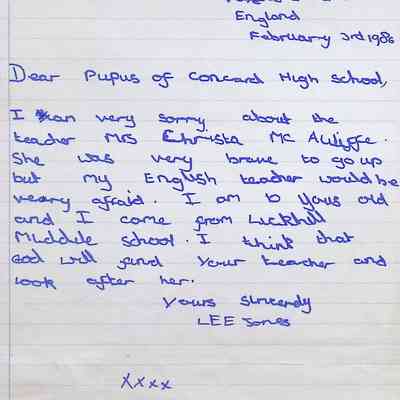 England
February 3rd 1986
Dear Pupus of Concard High school,
I am very sorry about the
teacher Mrs Christa Mc Auliffe.
She was very brave to go up
but my English teacher would be
veary afraid. I am 10 years old
and I come from Lickhill
Middele school. I think that
God will find your teacher and
look after her.
Yours sincerely
LEE Jones
xxxx